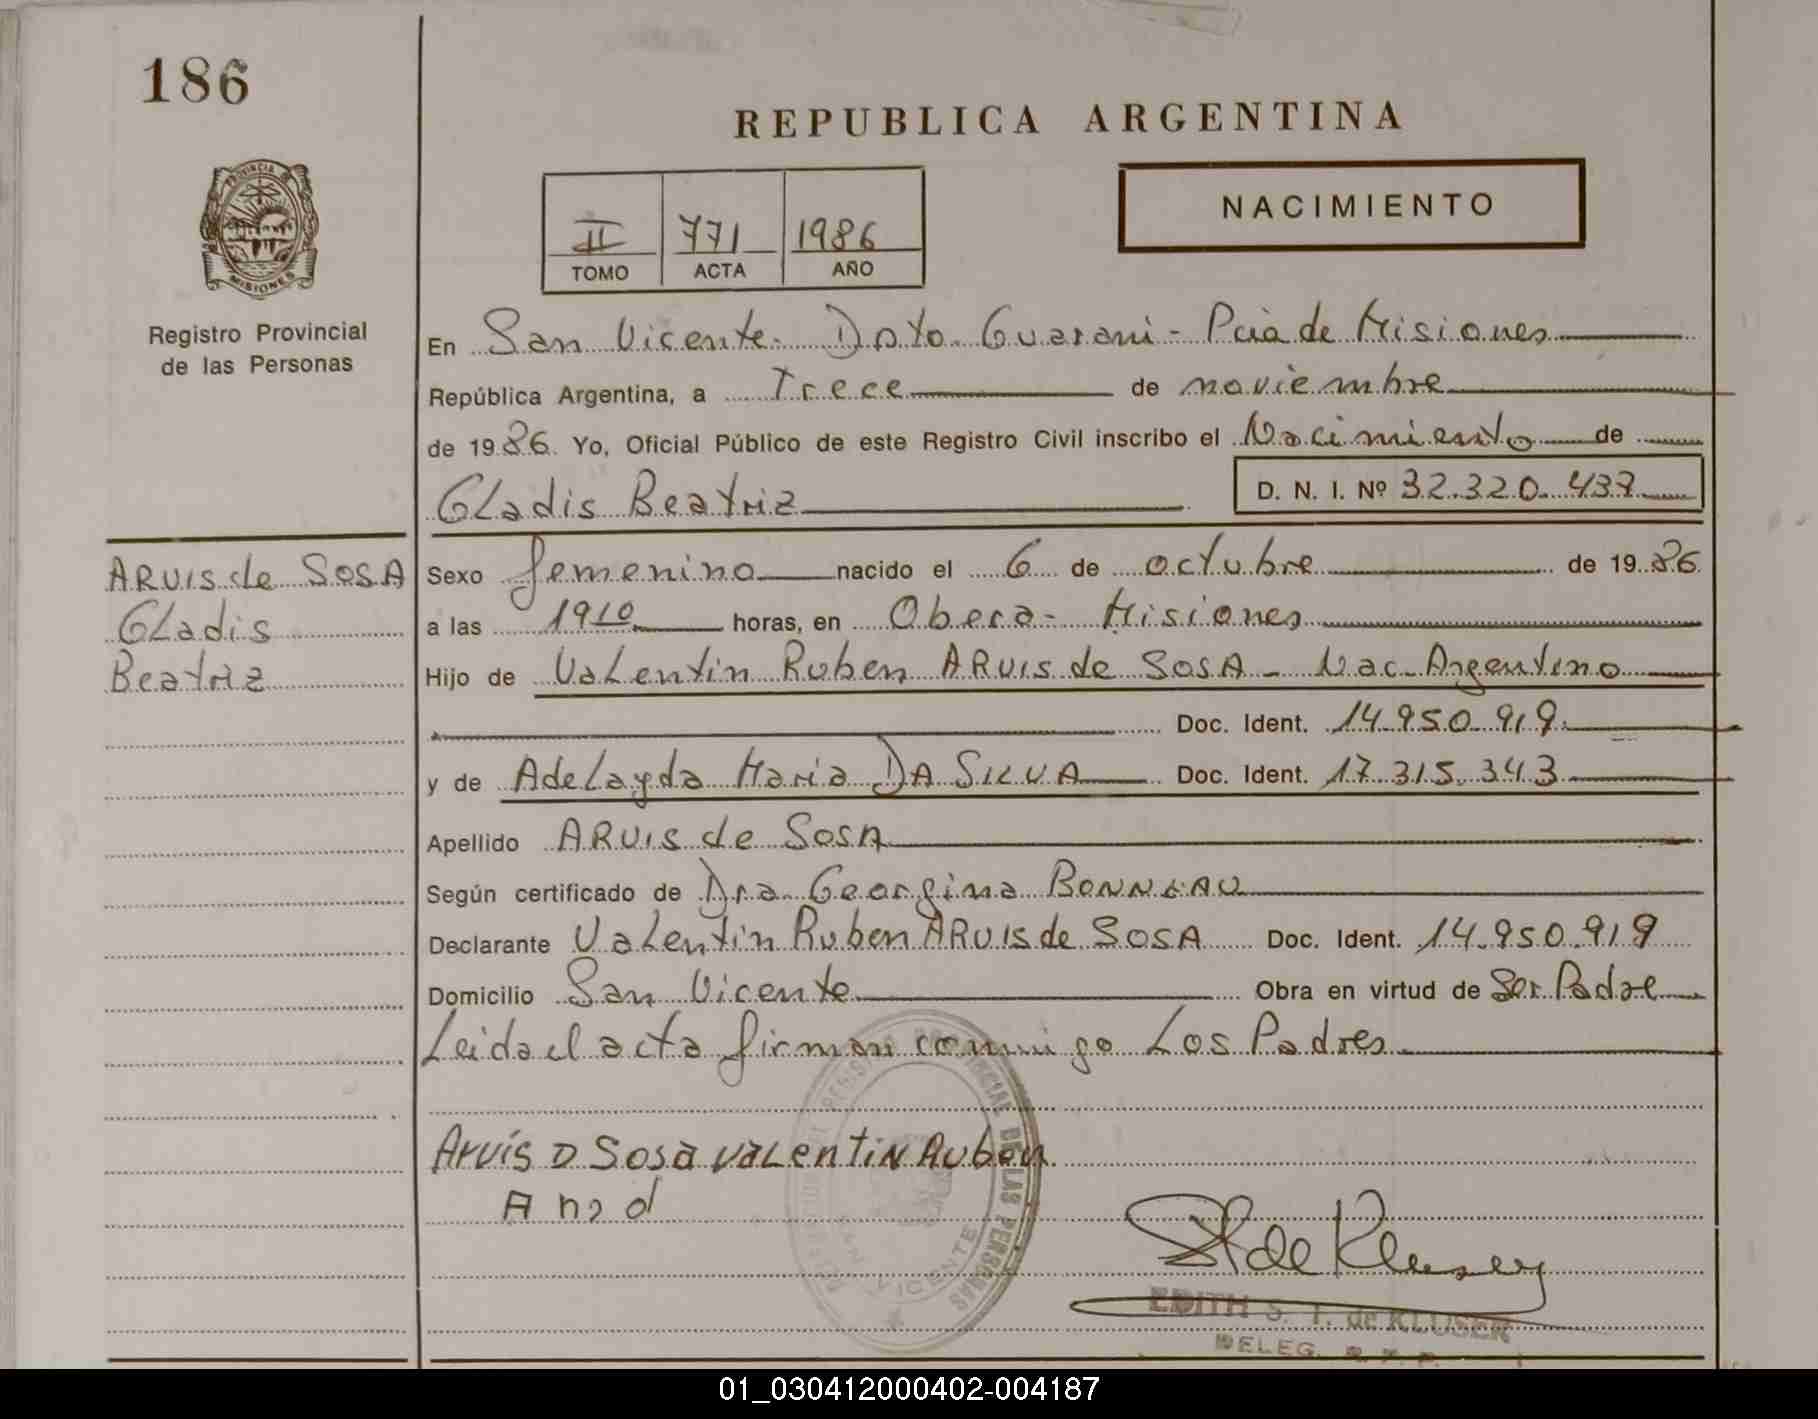 186
REPUBLICA ARGENTINA
PROVINCIA DE
MISIONES
Registro Provincial
de las Personas
II 771 1986
TOMO ACTA AÑO
NACIMIENTO
En San Vicente - Dpto Guarani - Pcia de Misiones
República Argentina, a Trece de noviembre
de 1986. Yo, Oficial Público de este Registro Civil inscribo el Nacimiento de
Gladis Beatriz D. N. I. Nº 32.320.437
ARUIS de SOSA
Gladis
Beatriz
Sexo femenino nacido el 6 de octubre de 1986
a las 19 10 horas, en Obera - Misiones
Hijo de Valentin Ruben ARUIS de SOSA - Nac. Argentino
Doc. Ident. 14.950.919
y de Adelayda Maria DA SILVA Doc. Ident. 17.315.343
Apellido ARUIS de SOSA
Según certificado de Dra Georgina BONNEAU
Declarante Valentin Ruben ARUIS de SOSA Doc. Ident. 14.950.919
Domicilio San Vicente Obra en virtud de Ser Padre
Leida el acta firman conmigo Los Padres
Aruis D Sosa Valentin Ruben
DELEGACION DEL REGISTRO PROVINCIAL DE LAS PERSONAS
SAN VICENTE
de Kluser
EDITH S. T. de KLUSER
DELEG. R. P. P.
01_030412000402-004187